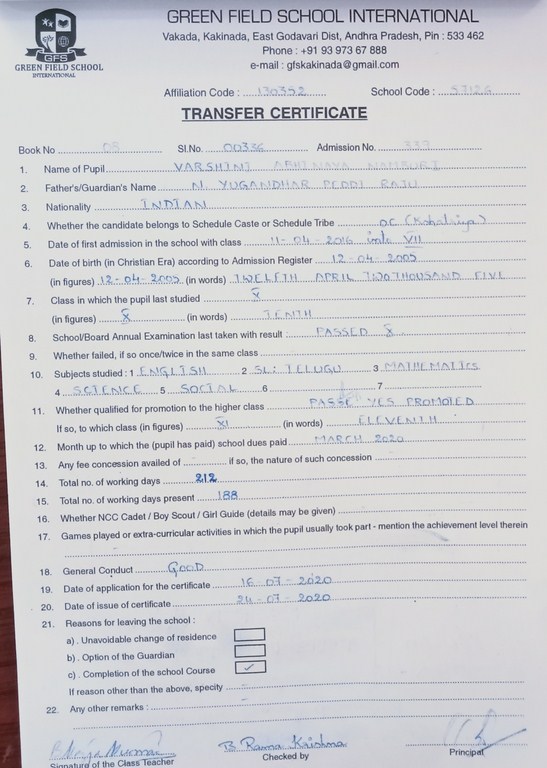 GREEN FIELD SCHOOL INTERNATIONAL
Vakada, Kakinada, East Godavari Dist, Andhra Pradesh, Pin : 533 462
Phone : +91 93 973 67 888
e-mail : gfskakinada@gmail.com
GFS
GREEN FIELD SCHOOL
INTERNATIONAL
Affiliation Code : 130352 School Code : 57126
TRANSFER CERTIFICATE
Book No 05 Sl.No. 00336 Admission No. 337
1. Name of Pupil VARSHINI ABHINAYA NAMBURI
2. Father's/Guardian's Name N. YUGANDHAR PEDDI RAJU
3. Nationality INDIAN
4. Whether the candidate belongs to Schedule Caste or Schedule Tribe OC (Kshatriya)
5. Date of first admission in the school with class 11-04-2016 into VII
6. Date of birth (in Christian Era) according to Admission Register 12-04-2005
(in figures) 12-04-2005 (in words) TWELFTH APRIL TWO THOUSAND FIVE
7. Class in which the pupil last studied X
(in figures) X (in words) TENTH
8. School/Board Annual Examination last taken with result : PASSED X
9. Whether failed, if so once/twice in the same class
10. Subjects studied : 1 ENGLISH 2 SL: TELUGU 3 MATHEMATICS
4 SCIENCE 5 SOCIAL 6 7
11. Whether qualified for promotion to the higher class YES PROMOTED
If so, to which class (in figures) XI (in words) ELEVENTH
12. Month up to which the (pupil has paid) school dues paid MARCH 2020
13. Any fee concession availed of if so, the nature of such concession
14. Total no. of working days 212
15. Total no. of working days present 188
16. Whether NCC Cadet / Boy Scout / Girl Guide (details may be given)
17. Games played or extra-curricular activities in which the pupil usually took part - mention the achievement level therein
18. General Conduct GOOD
19. Date of application for the certificate 16-07-2020
20. Date of issue of certificate 24-07-2020
21. Reasons for leaving the school :
a) . Unavoidable change of residence
b) . Option of the Guardian
c) . Completion of the school Course ✓
If reason other than the above, specify
22. Any other remarks :
B Rama Krishna
Signature of the Class Teacher Checked by Principal